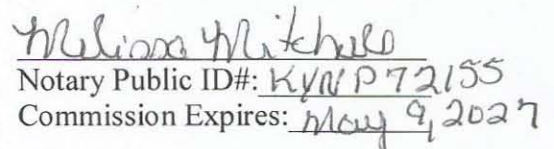 Melissa Mitchell
Notary Public ID#: KYNP72155
Commission Expires: May 9, 2027